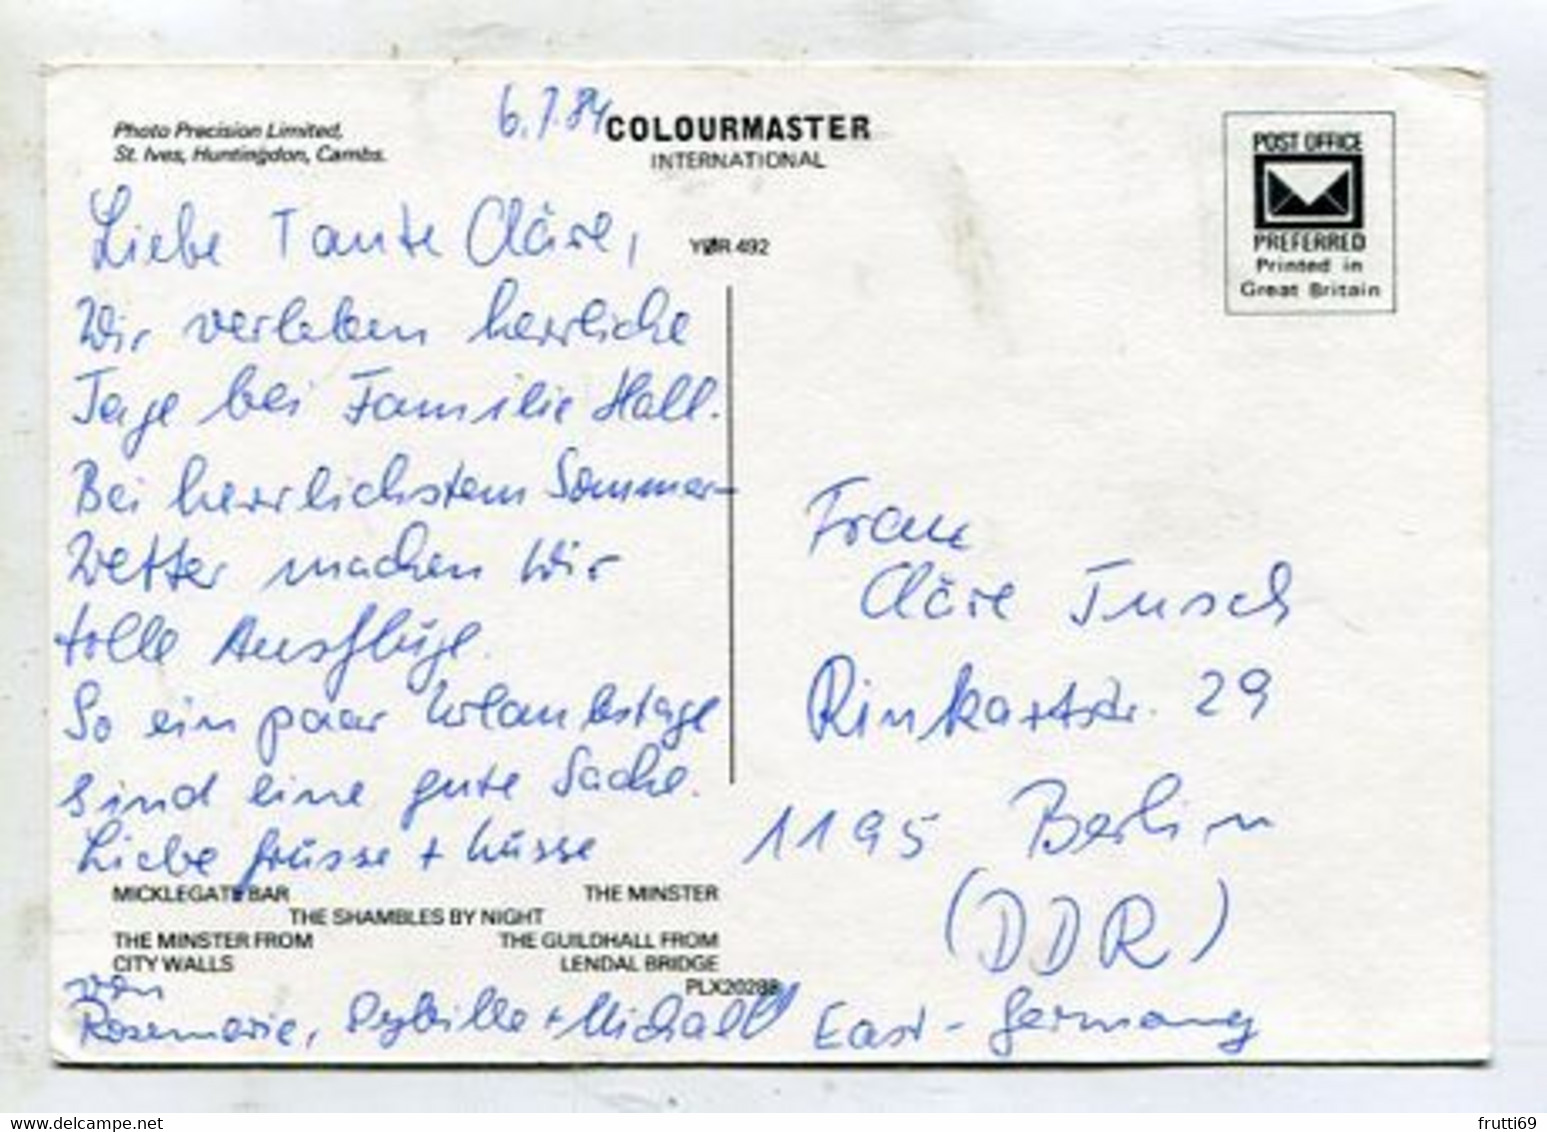 6.7.84
Photo Precision Limited,
St. Ives, Huntingdon, Cambs.
COLOURMASTER
INTERNATIONAL
POST OFFICE
PREFERRED
Printed in
Great Britain
YØR 492
Liebe Tante Cläre,
Wir verleben herrliche
Tage bei Familie Hall.
Bei herrlichstem Sommer-
wetter machen wir
tolle Ausflüge.
So ein paar Urlaubstage
sind eine gute Sache.
Liebe Grüsse + Küsse
MICKLEGATE BAR
THE MINSTER
THE SHAMBLES BY NIGHT
THE MINSTER FROM
CITY WALLS
THE GUILDHALL FROM
LENDAL BRIDGE
PLX20288
von
Rosemarie, Sybille + Michael
Frau
Cläre Tusch
Rinkartstr. 29
1195 Berlin
(DDR)
East-Germany
frutti69